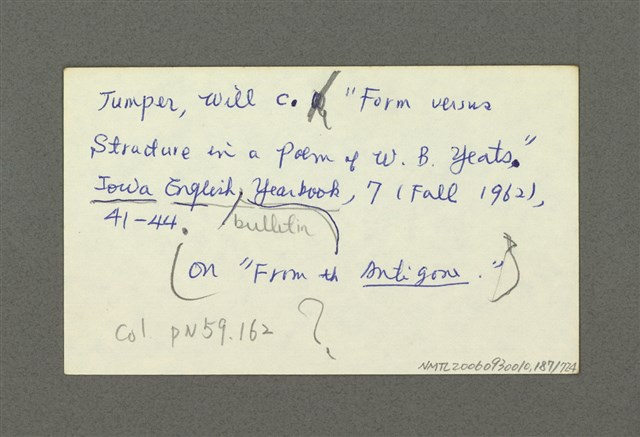 Jumper, Will C. "Form versus
Structure in a Poem of W. B. Yeats."
Iowa English Yearbook, 7 (Fall 1962),
bulletin
41-44.
(On "From th Antigone.")
Col PN59.162 ?
NMTL20060930010.187/724